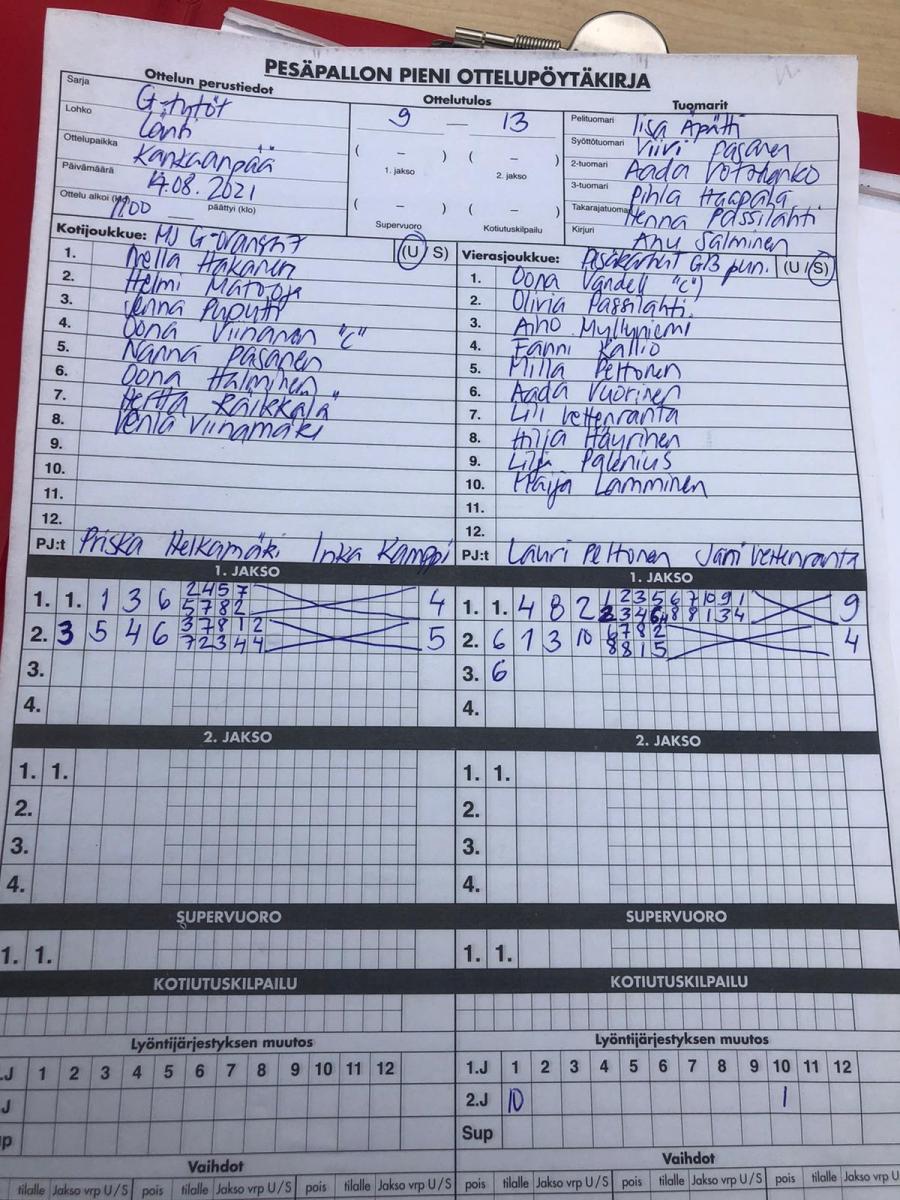 PESÄPALLON PIENI OTTELUPÖYTÄKIRJA
Ottelun perustiedot
Sarja G-tytöt
Lohko Länti
Ottelupaikka Kankaanpää
Päivämäärä 14.08.2021
Ottelu alkoi (klo) 11.00 päättyi (klo)
Ottelutulos
9 – 13
( – ) ( – )
1. jakso 2. jakso
( – ) ( – )
Supervuoro Kotiutuskilpailu
Tuomarit
Pelituomari Iisa Äpätti
Syöttötuomari Viivi Pasanen
2-tuomari Aada
3-tuomari Pihla Haapala
Takarajatuomari Henna Passilahti
Kirjuri Anu Salminen
Kotijoukkue: MJ G- (U/S)
1. Nella Hakanen
2. Helmi
3. Jenna Puputti
4. Oona Viinanen "C"
5. Nanna Pasanen
6. Oona Halminen
7. Hertta Räikkälä
8. Venla Viinamäki
9.
10.
11.
12.
PJ:t Priska Helkamäki Inka Kamppi
Vierasjoukkue: Pesäkarhut G13 pun. (U/S)
1. Oona Vandell "C"
2. Olivia Passilahti
3. Aino Myllyniemi
4. Fanni Kallio
5. Milla Peltonen
6. Aada Vuorinen
7. Lili Vettenranta
8. Hilja Häyrinen
9. Lilja Palenius
10. Maija Lamminen
11.
12.
PJ:t Lauri Peltonen Jani Vettenranta
1. JAKSO
1. 1. 1 3 6 2 4 5 7 4
5 7 8 2
2. 3 5 4 6 3 7 8 1 2 5
7 2 3 4 4
3.
4.
1. JAKSO
1. 1. 4 8 2 1 2 3 5 6 7 10 9 1 9
2 3 4 6 8 8 1 3 4
2. 6 1 3 10 6 7 8 2 4
8 8 1 5
3. 6
4.
2. JAKSO
1. 1.
2.
3.
4.
2. JAKSO
1. 1.
2.
3.
4.
SUPERVUORO
1. 1.
SUPERVUORO
1. 1.
KOTIUTUSKILPAILU
KOTIUTUSKILPAILU
Lyöntijärjestyksen muutos
.J 1 2 3 4 5 6 7 8 9 10 11 12
J
p
Lyöntijärjestyksen muutos
1.J 1 2 3 4 5 6 7 8 9 10 11 12
2.J 10 1
Sup
Vaihdot
tilalle Jakso vrp U/S pois tilalle Jakso vrp U/S pois
Vaihdot
pois tilalle Jakso vrp U/S pois tilalle Jakso vrp U/S